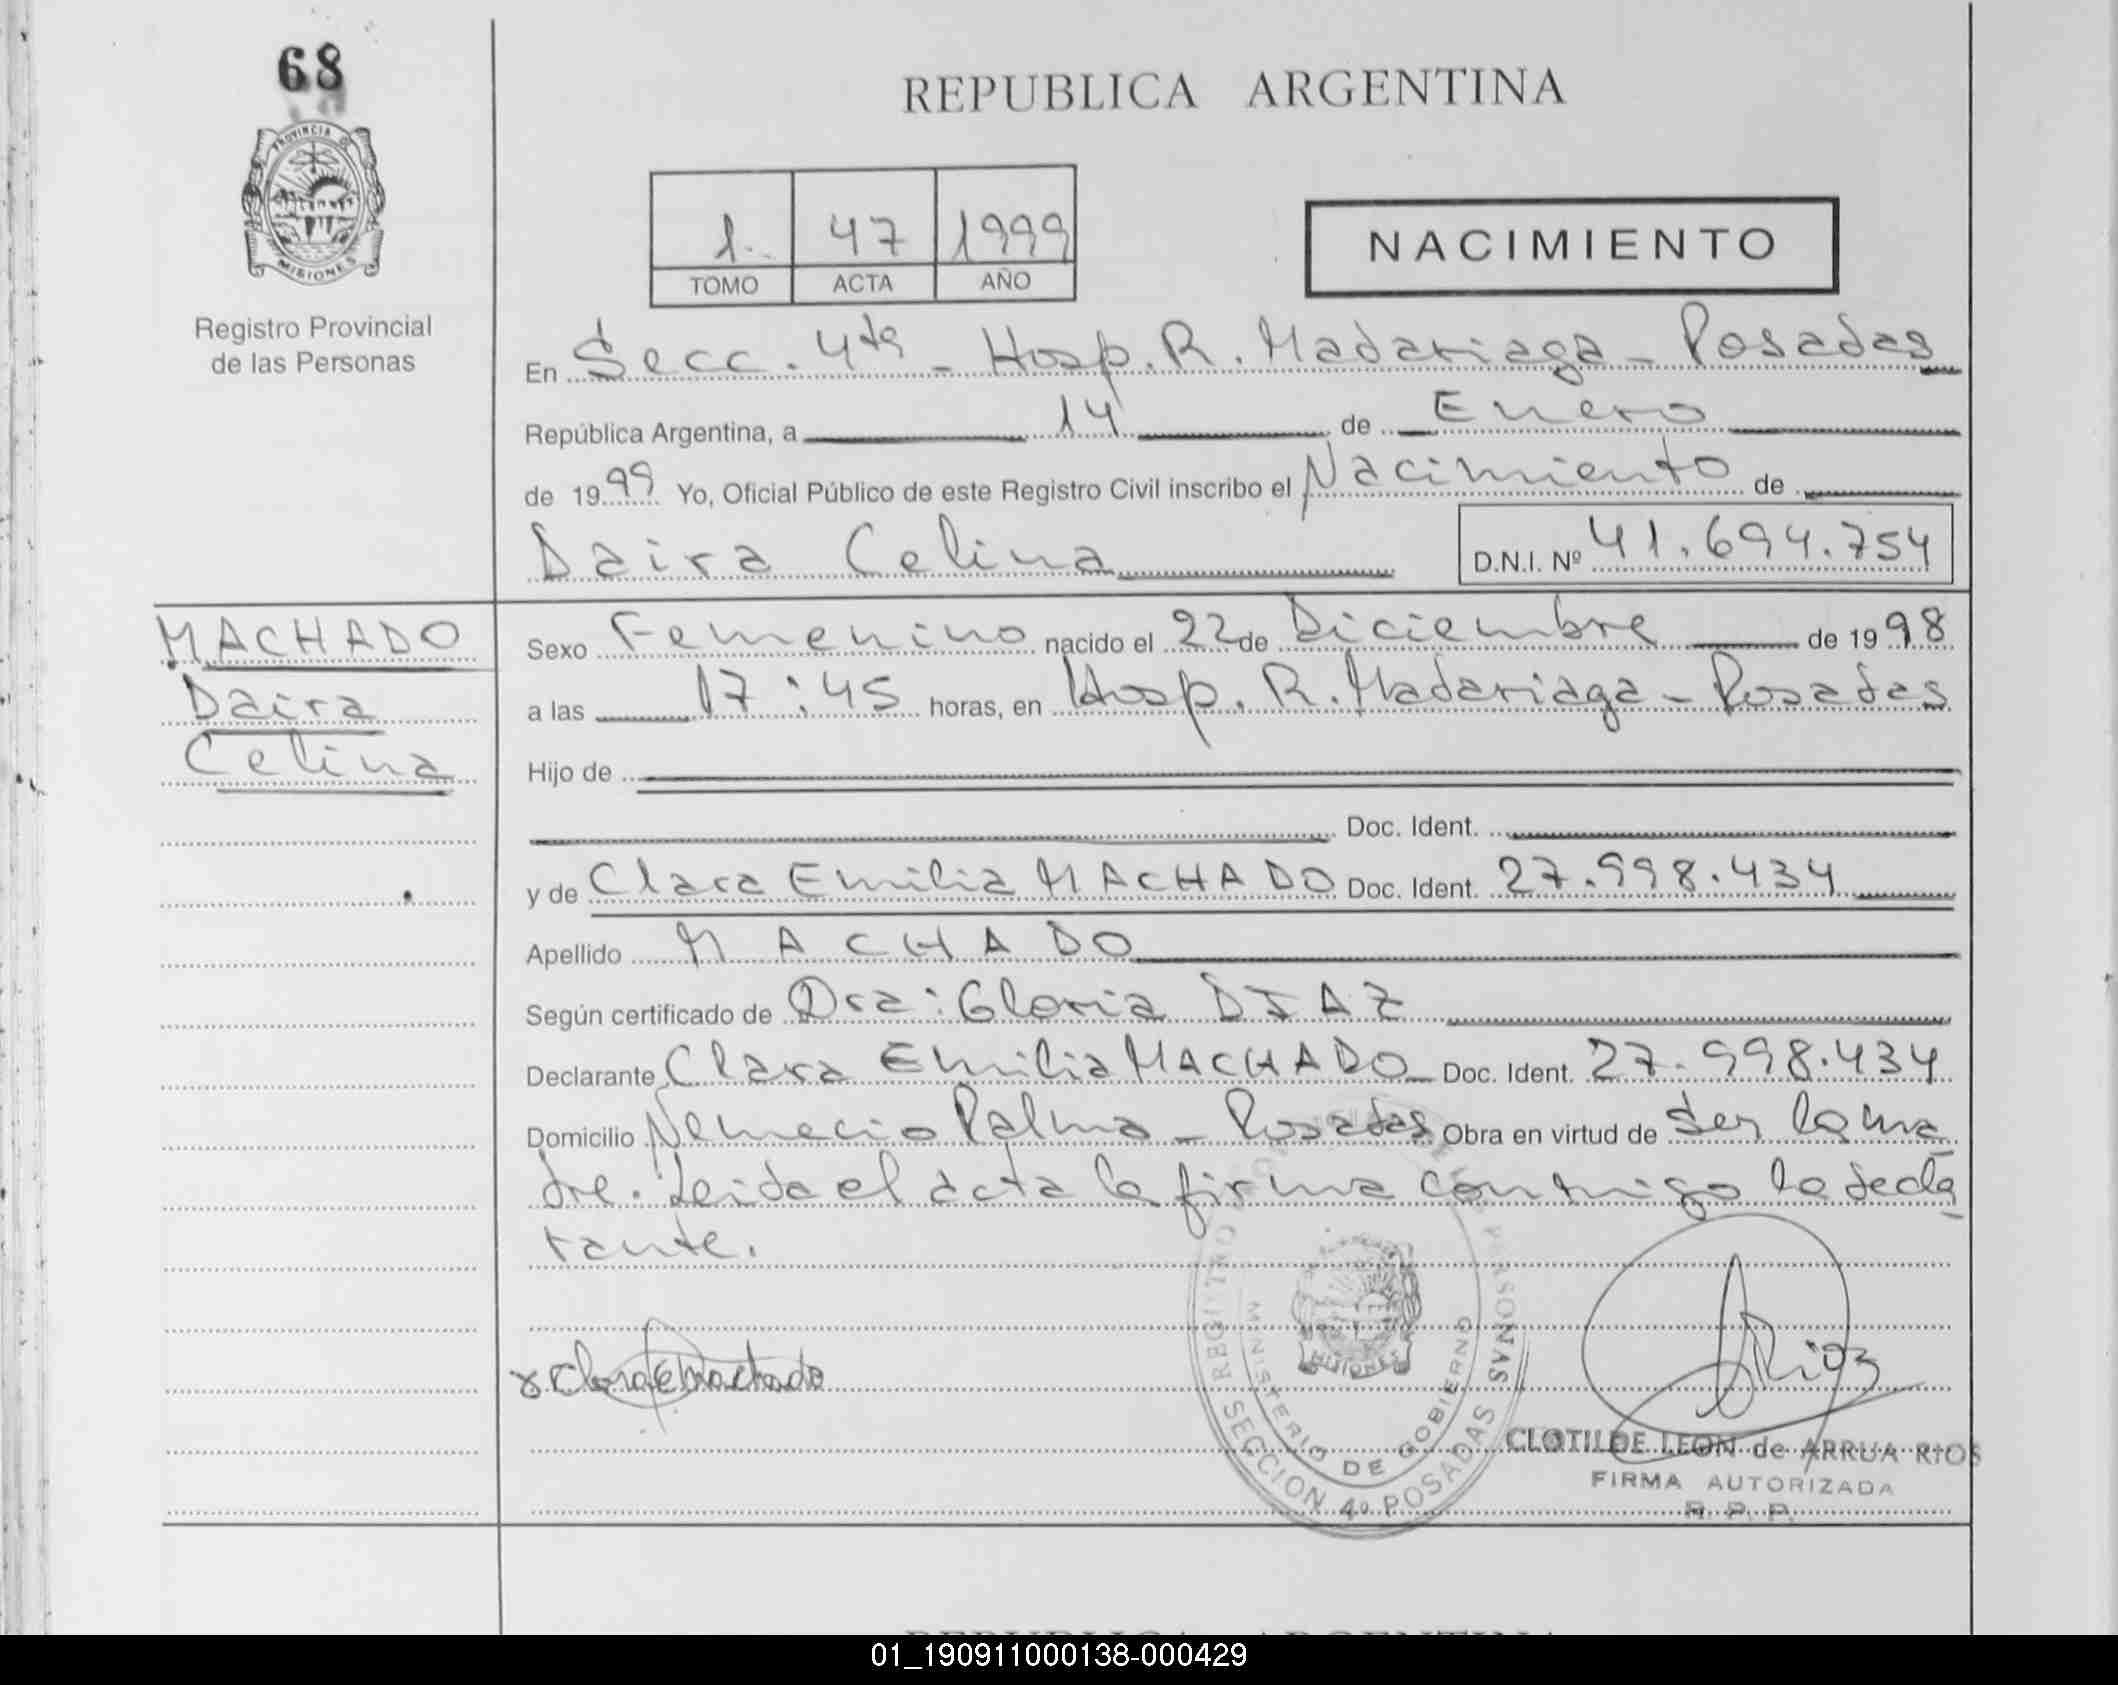 68
PROVINCIA DE
MISIONES
Registro Provincial
de las Personas
REPUBLICA ARGENTINA
1. 47 1999
TOMO ACTA AÑO
NACIMIENTO
En Secc. 4ta - Hosp. R. Madariaga - Posadas
República Argentina, a 14 de Enero
de 1999 Yo, Oficial Público de este Registro Civil inscribo el Nacimiento de
Daira Celina D.N.I. Nº 41.694.754
MACHADO
Daira
Celina
Sexo Femenino nacido el 22 de Diciembre de 1998
a las 17:45 horas, en Hosp. R. Madariaga - Posadas
Hijo de
Doc. Ident.
y de Clara Emilia MACHADO Doc. Ident. 27.998.434
Apellido MACHADO
Según certificado de Dra: Gloria DIAZ
Declarante Clara Emilia MACHADO Doc. Ident. 27.998.434
Domicilio Nemecio Palma - Posadas Obra en virtud de ser la ma
dre. Leida el acta la firma conmigo la decla
rante.
x Clara E Machado
Rios
REGISTRO PERSONAS
MINISTERIO DE GOBIERNO
MISIONES
SECCION 4º POSADAS
CLOTILDE LEON de ARRUA RIOS
FIRMA AUTORIZADA
R. P. P.
REPUBLICA ARGENTINA
01_190911000138-000429